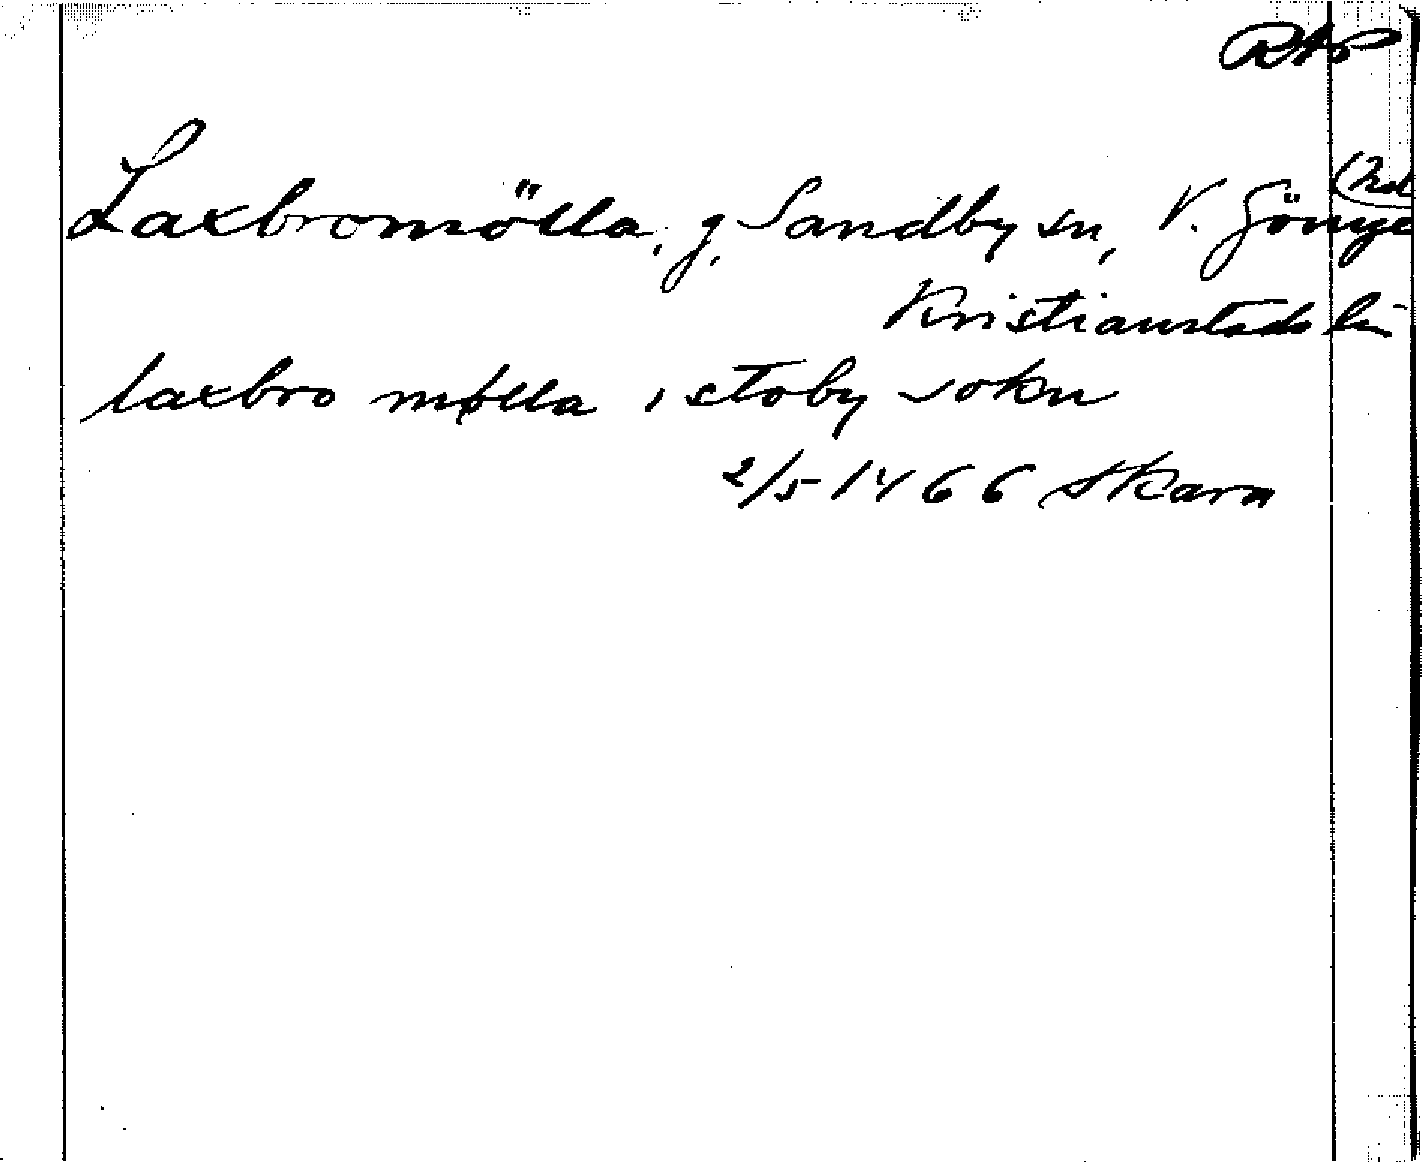 RAP
Laxbromölla, g, Sandby sn, V. Göinge
Kristianstads län
laxbro mølla i stoby sokn
2/5 1466 Skara